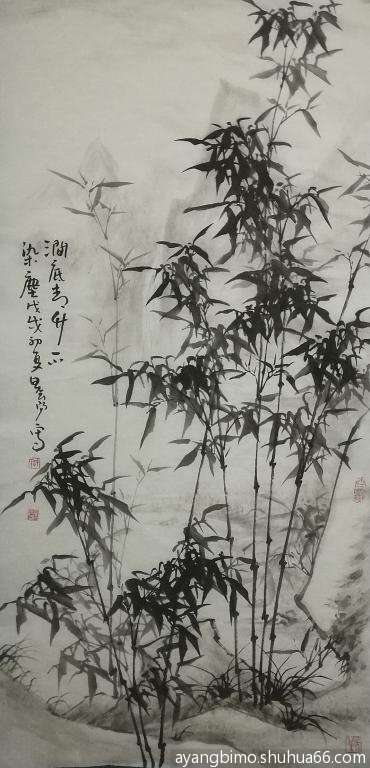 澗底青竹不
染塵戊戌初夏
ayangbimo.shuhua66.com